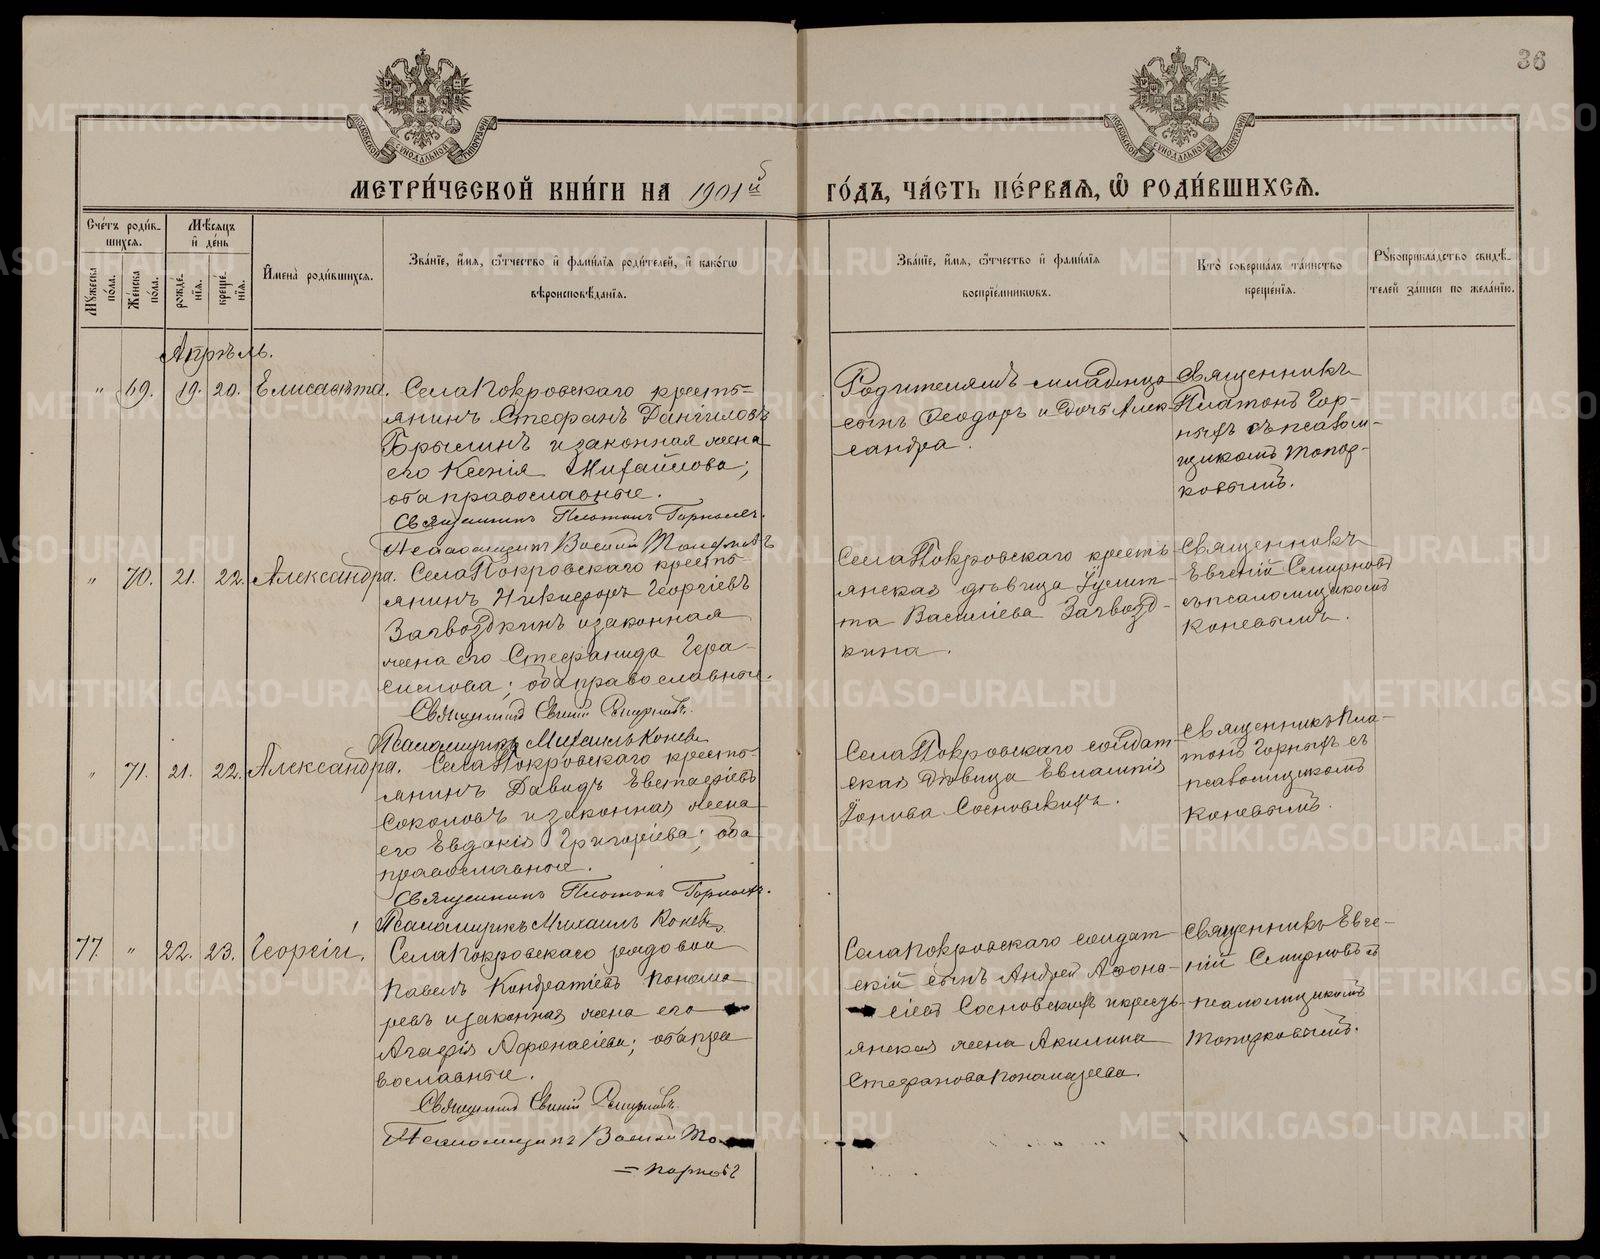 36
МОСКОВСКОЙ СѴНОДАЛЬНОЙ ТИПОГРАФІИ
МОСКОВСКОЙ СѴНОДАЛЬНОЙ ТИПОГРАФІИ
МЕТРИ́ЧЕСКОЙ КНИ́ГИ НА 1901й
ГО́ДЪ, ЧА́СТЬ ПЕ́РВАѦ, Ѽ РОДИ́ВШИХСѦ.
Сче́тъ роди́в-
шихся.
Мꙋ́жеска по́ла.
Же́нска по́ла.
Мѣ́сяцъ и де́нь
рожде́нїя.
креще́нїя.
Имена̀ роди́вшихся.
Зва́нїе, и́мя, ѻ҆́тчество и фами́лїя роди́телей, и како́гѡ
вѣроисповѣ́данїя.
Зва́нїе, и́мя, ѻ҆́тчество и фами́лїя
воспрїе́мникѡвъ.
Кто̀ соверша́лъ та́инство
креще́нїя.
Рꙋкоприкла́дство свидѣ́-
телей за́писи по жела́нїю.
Апрѣль.
" 69. 19. 20. Елисавета. Села Покровскаго кресть=
янинъ Стефанъ Даніиловъ
Брылинъ и законная жена
его Ксенія Михайлова;
оба православные.
Священникъ Платонъ Горныхъ.
Псаломщикъ Василій Топорковъ
Родителямъ младенца
сынъ Ѳеодоръ и дочь Алек-
сандра.
Священникъ
Платонъ Гор-
ныхъ съ псалом-
щикомъ Топор-
ковымъ.
" 70. 21. 22. Александра. Села Покровскаго кресть-
янинъ Никифоръ Георгіевъ
Загвоздкинъ и законная
жена его Стефанида Гера-
симова; оба православные.
Священникъ Евгеній Смирновъ.
Псаломщикъ Михаилъ Коневъ
Села Покровскаго кресть
янская дѣвица Іулит-
та Василіева Загвозд-
кина.
Священникъ
Евгеній Смирновъ
съ псаломщикомъ
Коневымъ.
" 71. 21. 22. Александра. Села Покровскаго кресть-
янинъ Давидъ Евстафіевъ
Соколовъ и законная жена
его Евдокія Григоріева; оба
православные.
Священникъ Платонъ Горныхъ.
Псаломщикъ Михаилъ Коневъ
Села Покровскаго солдат-
ская дѣвица Евлампія
Іонова Сосновскихъ.
Священникъ Пла-
тонъ Горныхъ съ
псаломщикомъ
Коневымъ.
77. " 22. 23. Георгій. Села Покровскаго рядовой
Павелъ Кондратіевъ Понома
ревъ и законная жена его
Агафія Афонасіева; оба пра
вославные.
Священникъ Евгеній Смирновъ.
Псаломщикъ Василій То-
=порковъ
Села Покровскаго солдат-
скій сынъ Андрей Афона-
сіевъ Сосновскихъ и кресть-
янская жена Акилина
Стефанова Пономарева.
Священникъ Евге-
ній Смирновъ съ
псаломщикомъ
Топорковымъ.
METRIKI.GASO-URAL.RU